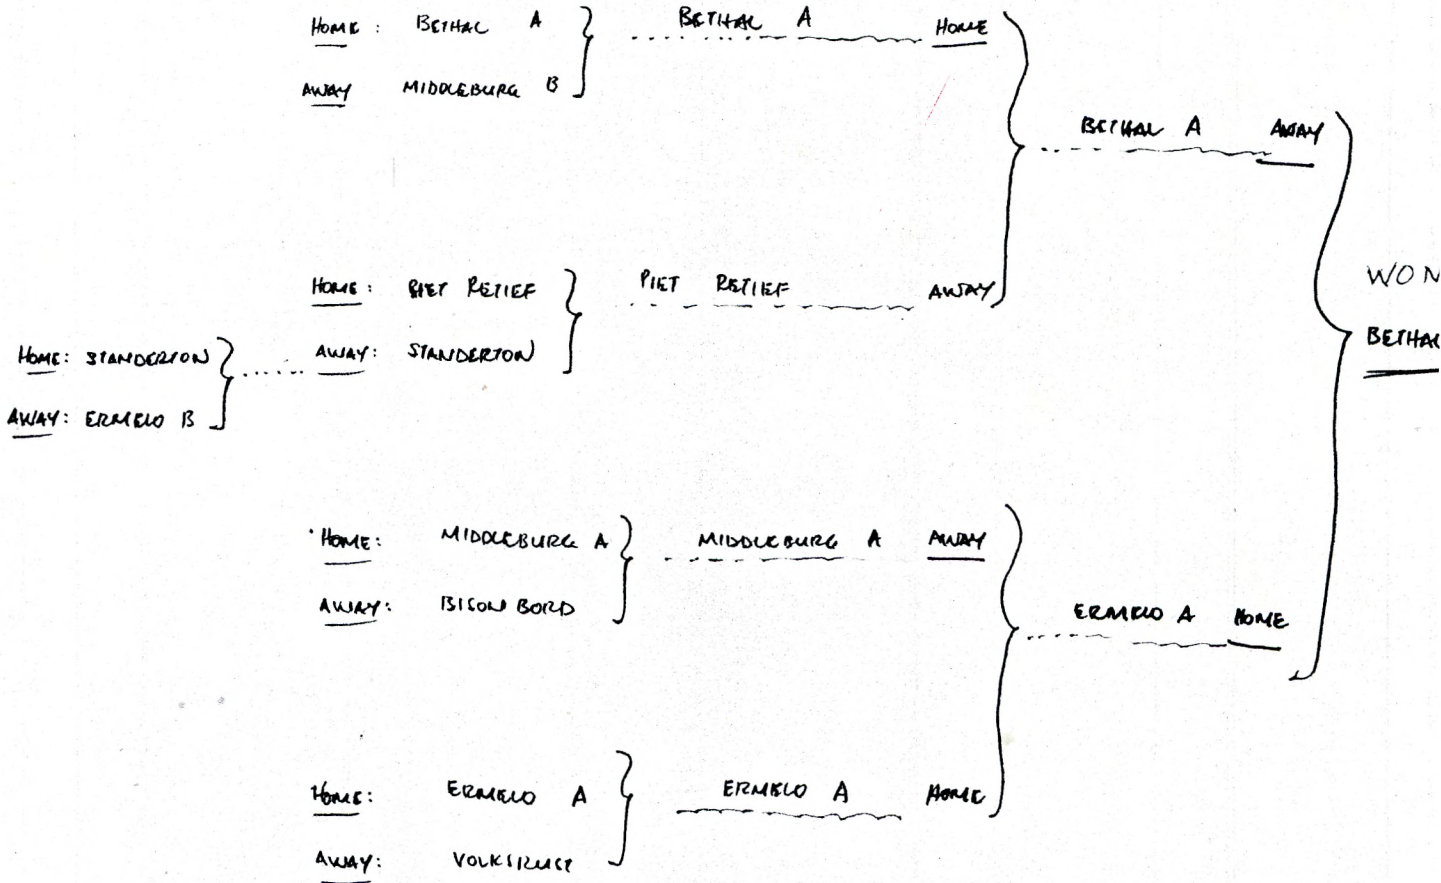 HOME: BETHAL A
AWAY MIDDLEBURG B
BETHAL A HOME
BETHAL A AWAY
HOME: PIET RETIEF
AWAY: STANDERTON
PIET RETIEF AWAY
WON
BETHAL
HOME: STANDERTON
AWAY: ERMELO B
HOME: MIDDLEBURG A
AWAY: BISON BORD
MIDDLEBURG A AWAY
ERMELO A HOME
HOME: ERMELO A
AWAY: VOLKSRUST
ERMELO A HOME